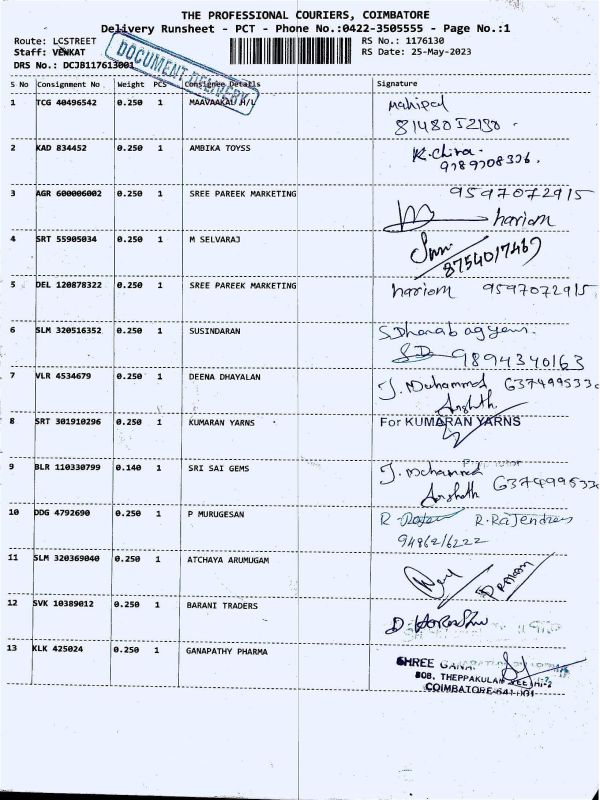 THE PROFESSIONAL COURIERS, COIMBATORE
Delivery Runsheet - PCT - Phone No.:0422-3505555 - Page No.:1
Route: LCSTREET
Staff: VENKAT
DRS No.: DCJB117613001
RS No.: 1176130
RS Date: 25-May-2023
DOCUMENT DELIVERY
S No Consignment No Weight PCS Consignee Details Signature
1 TCG 40496542 0.250 1 MAAVAAKAL H/L Mahipal
8148052130
2 KAD 834452 0.250 1 AMBIKA TOYSS K.Chitra.
9789708336.
3 AGR 600006002 0.250 1 SREE PAREEK MARKETING 9597072915
hariom
4 SRT 55905034 0.250 1 M SELVARAJ
8754017467
5 DEL 120878322 0.250 1 SREE PAREEK MARKETING hariom 9597072915
6 SLM 320516352 0.250 1 SUSINDARAN
SD 9894340163
7 VLR 4534679 0.250 1 DEENA DHAYALAN J. Mohammed 637499533
Anshath
8 SRT 301910296 0.250 1 KUMARAN YARNS For KUMARAN YARNS
9 BLR 110330799 0.140 1 SRI SAI GEMS J. Mohammed
Anshath 637499533
10 DDG 4792690 0.250 1 P MURUGESAN R. RaJendran
9486216222
11 SLM 320369040 0.250 1 ATCHAYA ARUMUGAM
12 SVK 10389012 0.250 1 BARANI TRADERS
13 KLK 425024 0.250 1 GANAPATHY PHARMA SHREE GANA
808, THEPPAKULAM VEETHI-2
COIMBATORE-641 001